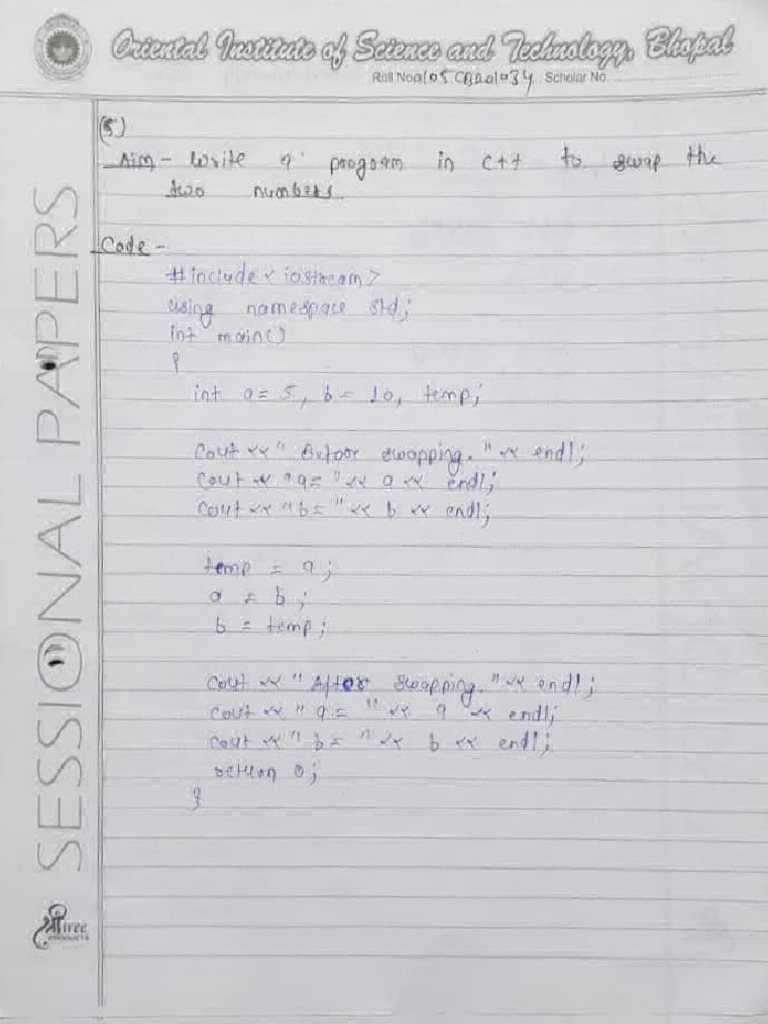 Oriental Institute of Science and Technology, Bhopal
Roll No. Scholar No.
(5)
Aim - Write a program in C++ to swap the
two numbers
Code -
#include <iostream>
using namespace std;
int main()
{
int a = 5, b = 10, temp;
cout << " Before swapping. " << endl;
cout << "a = " << a << endl;
cout << "b = " << b << endl;
temp = a;
a = b;
b = temp;
cout << " After swapping. " << endl;
cout << " a = " << a << endl;
cout << " b = " << b << endl;
return 0;
}
SESSIONAL PAPERS
Shree
PRODUCTS